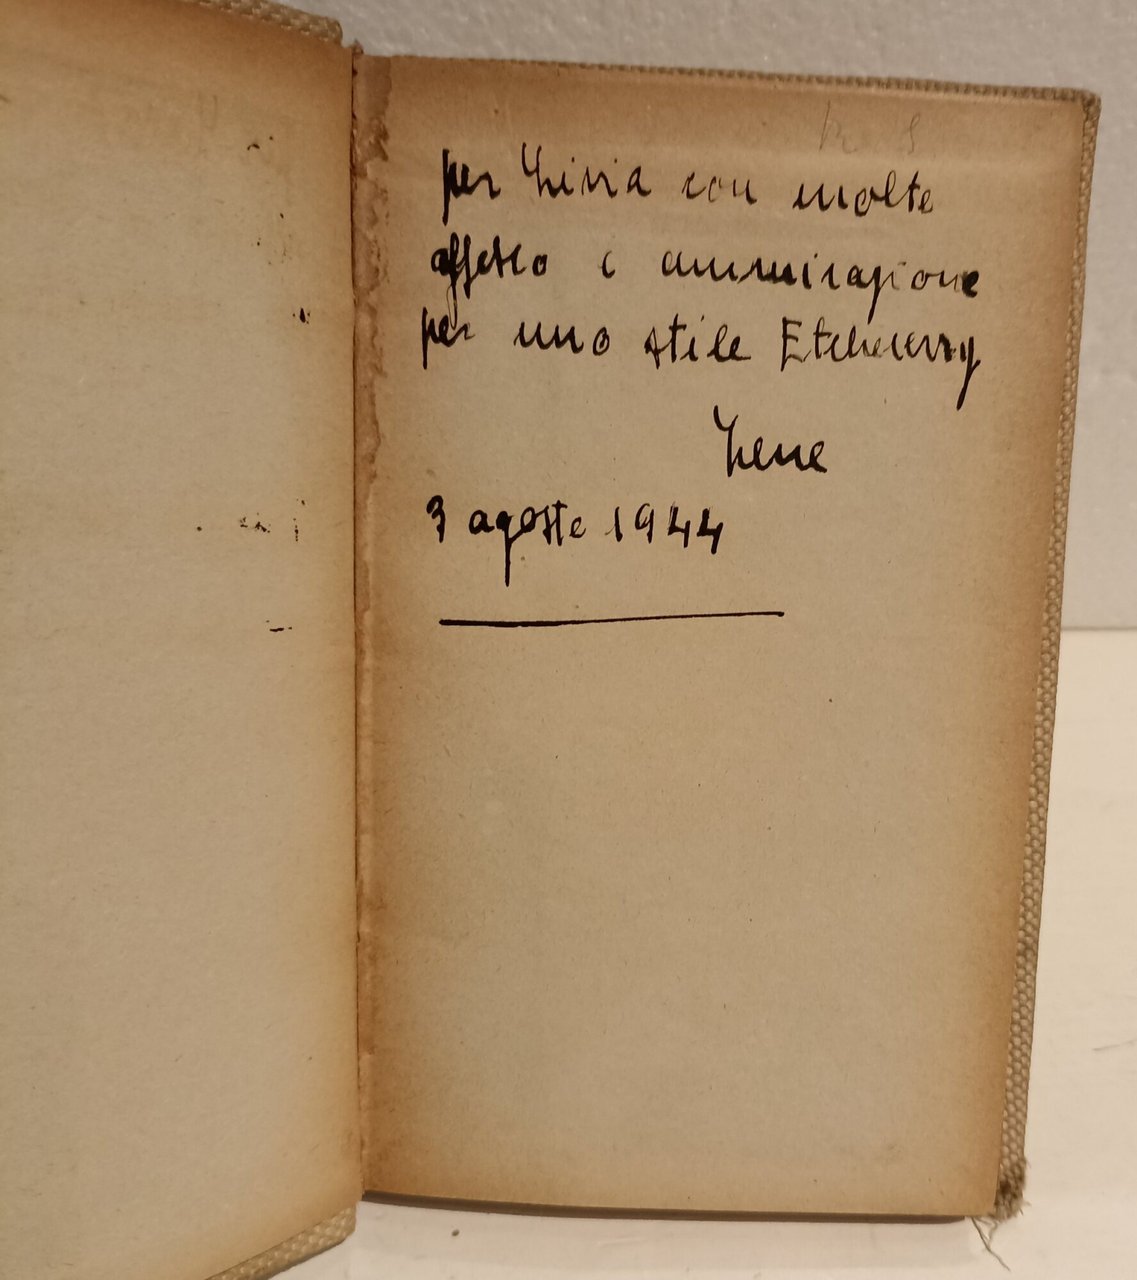 per Livia con molto
affetto e ammirazione
per uno stile Etcheverry
Lene
3 agosto 1944